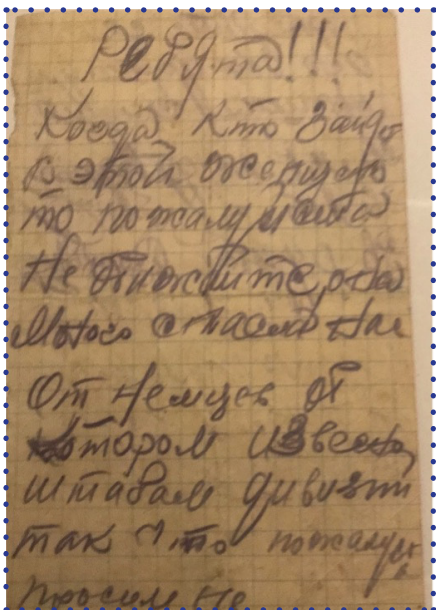 Ребята!!!
Когда кто зайдё
к этой женщине
то пожалуйста
Не обижайте, она
много спасла нас
От немцев об
котором известно
штабам дивизий
так что пожалуйста
просим не